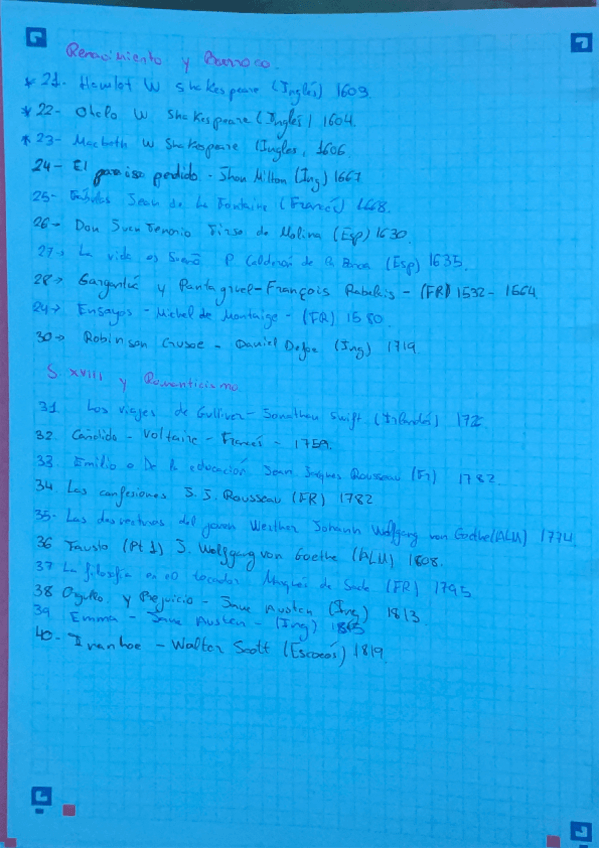 Renacimiento y Barroco.
* 21- Hamlet W Shakespeare (Inglés) 1609.
* 22- Otelo W. Shakespeare (Inglés) 1604.
* 23- Macbeth W Shakespeare (Ingles, 1606
24- El paraiso perdido - Jhon Milton (Ing) 1667
25- Fabulas Jean de La Fontaine (Francés) 1668.
26→ Don Juan Tenorio Tirso de Molina (Esp) 1630.
27→ La vida es Sueño P. Calderón de la Barca (Esp) 1635.
28→ Gargantúa y Pantagruel - François Rabelais - (FR) 1532 - 1564.
29→ Ensayos - Michel de Montaige - (FR) 1580.
30→ Robinson Crusoe - Daniel Defoe (Ing) 1719.
S. XVIII y Romanticismo.
31 Los viajes de Gulliver - Jonathan Swift (Irlandés)
32. Cándido - Voltaire - Francés - 1759.
33 Emilio o De la educación Jean Jacques Rousseau (Fr) 1782.
34 Las confesiones J. J. Rousseau (FR) 1782
35- Las desventuras del joven Werther Johann Wolfgang von Goethe (ALM) 1774.
36 Fausto (Pt 1) J. Wolfgang von Goethe (ALM) 1808.
37 La filosofía en el tocador Marqués de Sade (FR) 1795
38 Orgullo y Prejuicio - Jane Austen (Ing) 1813
39 Emma - Jane Austen - (Ing)
40- Ivanhoe - Walter Scott (Escocés) 1819.